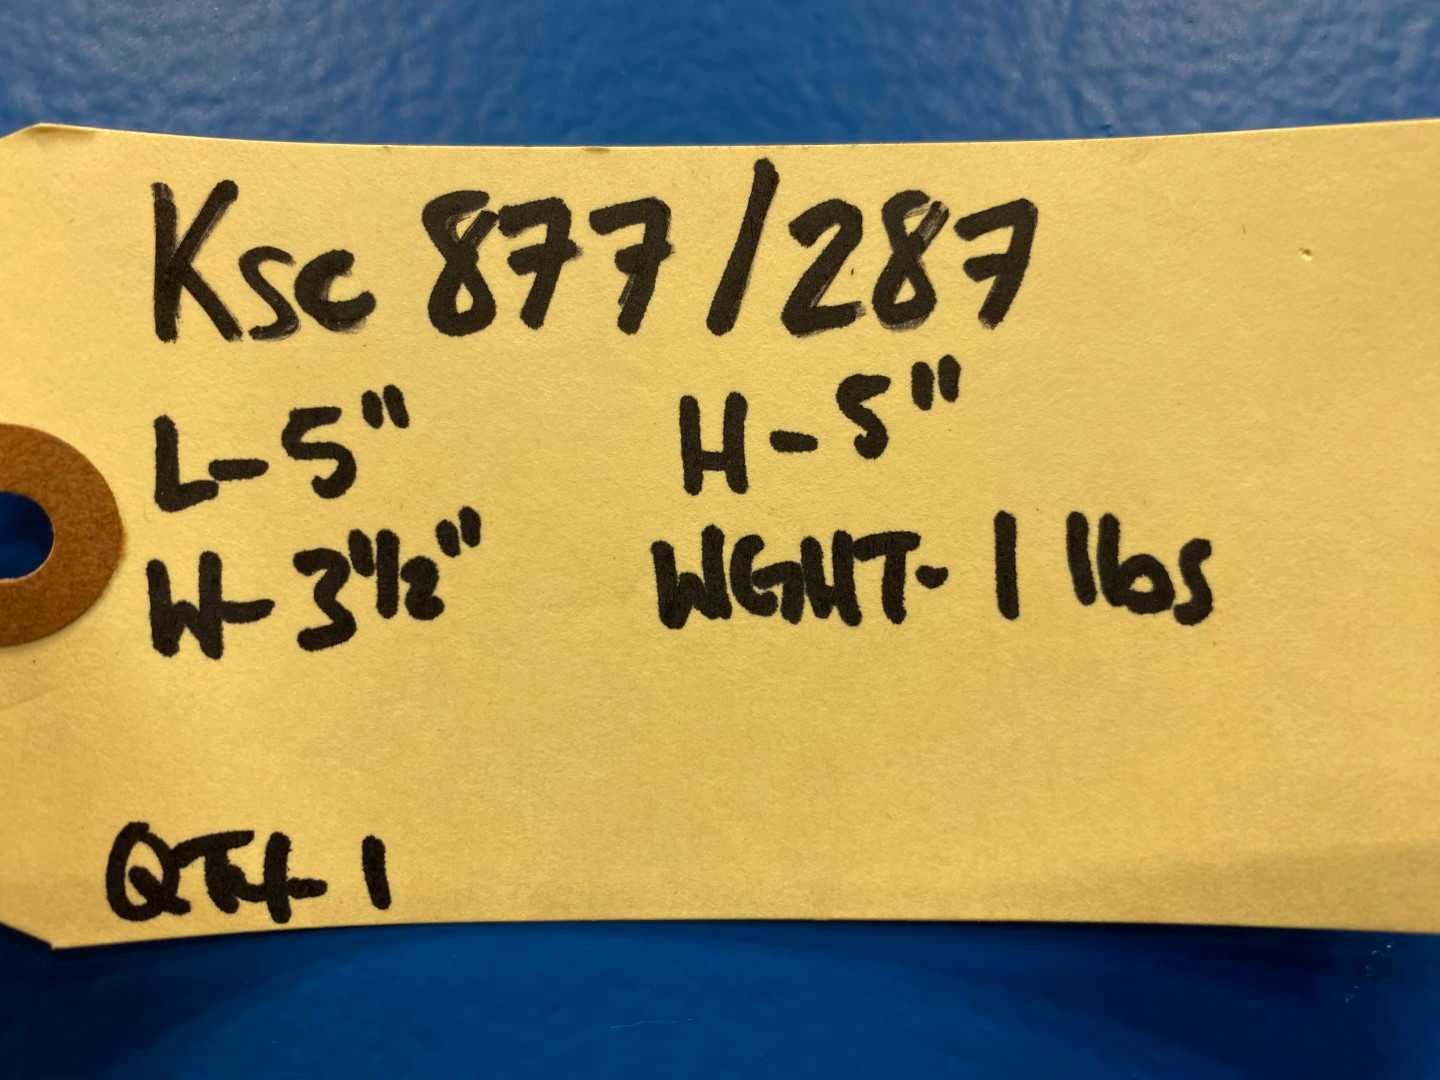 Ksc 877/287
L-5" H-5"
W-3 1/2" WGHT-1 lbs
QTY-1